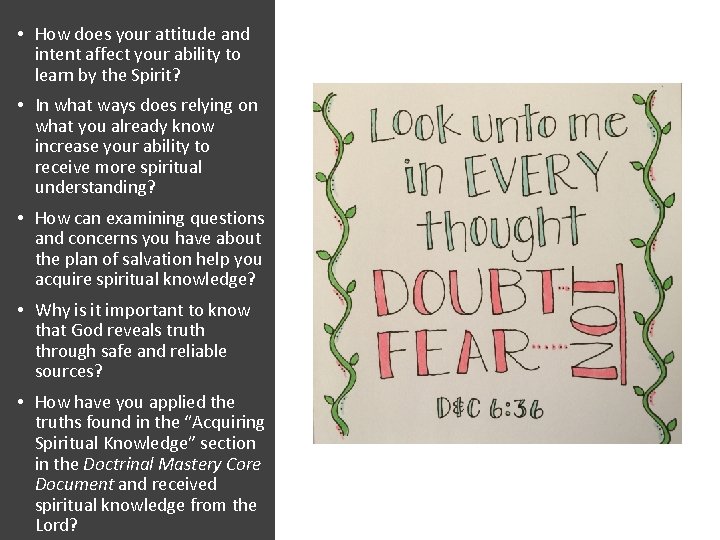 • How does your attitude and
intent affect your ability to
learn by the Spirit?
• In what ways does relying on
what you already know
increase your ability to
receive more spiritual
understanding?
• How can examining questions
and concerns you have about
the plan of salvation help you
acquire spiritual knowledge?
• Why is it important to know
that God reveals truth
through safe and reliable
sources?
• How have you applied the
truths found in the “Acquiring
Spiritual Knowledge” section
in the Doctrinal Mastery Core
Document and received
spiritual knowledge from the
Lord?
Look unto me
in EVERY
thought
DOUBT
FEAR
NOT
D&C 6:36